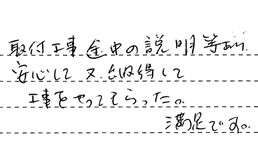 取付工事途中の説明等あり
安心して又納得して
工事をやってもらった。
満足です。